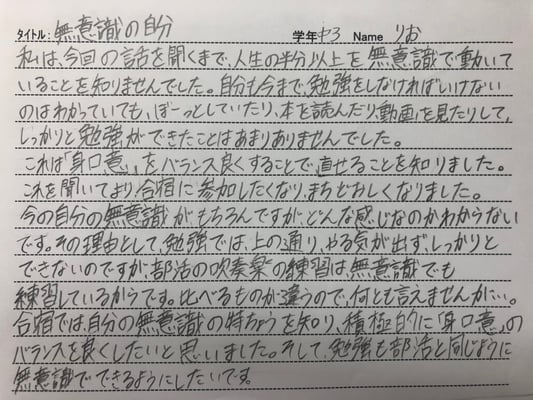 タイトル: 無意識の自分 学年 中3 Name りお
私は、今回の話を聞くまで、人生の半分以上を無意識で動いて
いることを知りませんでした。自分も今まで、勉強をしなければいけない
のはわかっていても、ぼーっとしていたり、本を読んだり、動画を見たりして、
しっかりと勉強ができたことはあまりありませんでした。
これは「身口意」をバランス良くすることで、直せることを知りました。
これを聞いてより、合宿に参加したくなり、まちどおしくなりました。
今の自分の無意識が、もちろんですが、どんな感じなのかわからない
です。その理由として、勉強では、上の通り、やる気が出ず、しっかりと
できないのですが、部活の吹奏楽の練習は、無意識でも
練習しているからです。比べるものが違うので、何とも言えませんが…。
合宿では、自分の無意識の特ちょうを知り、積極的に「身口意」の
バランスを良くしたいと思いました。そして、勉強も部活と同じように
無意識でできるようにしたいです。